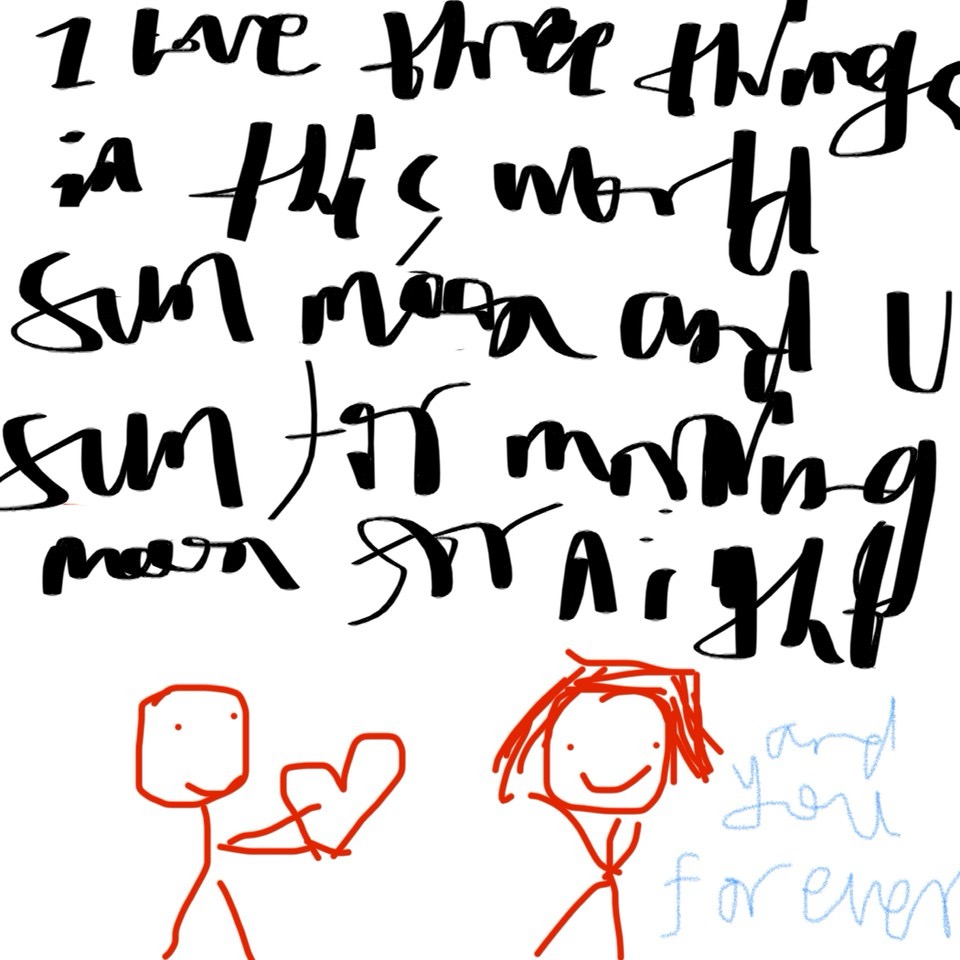 I love three things
in this world
sun moon and U
sun for morning
moon for night
and
you
forever